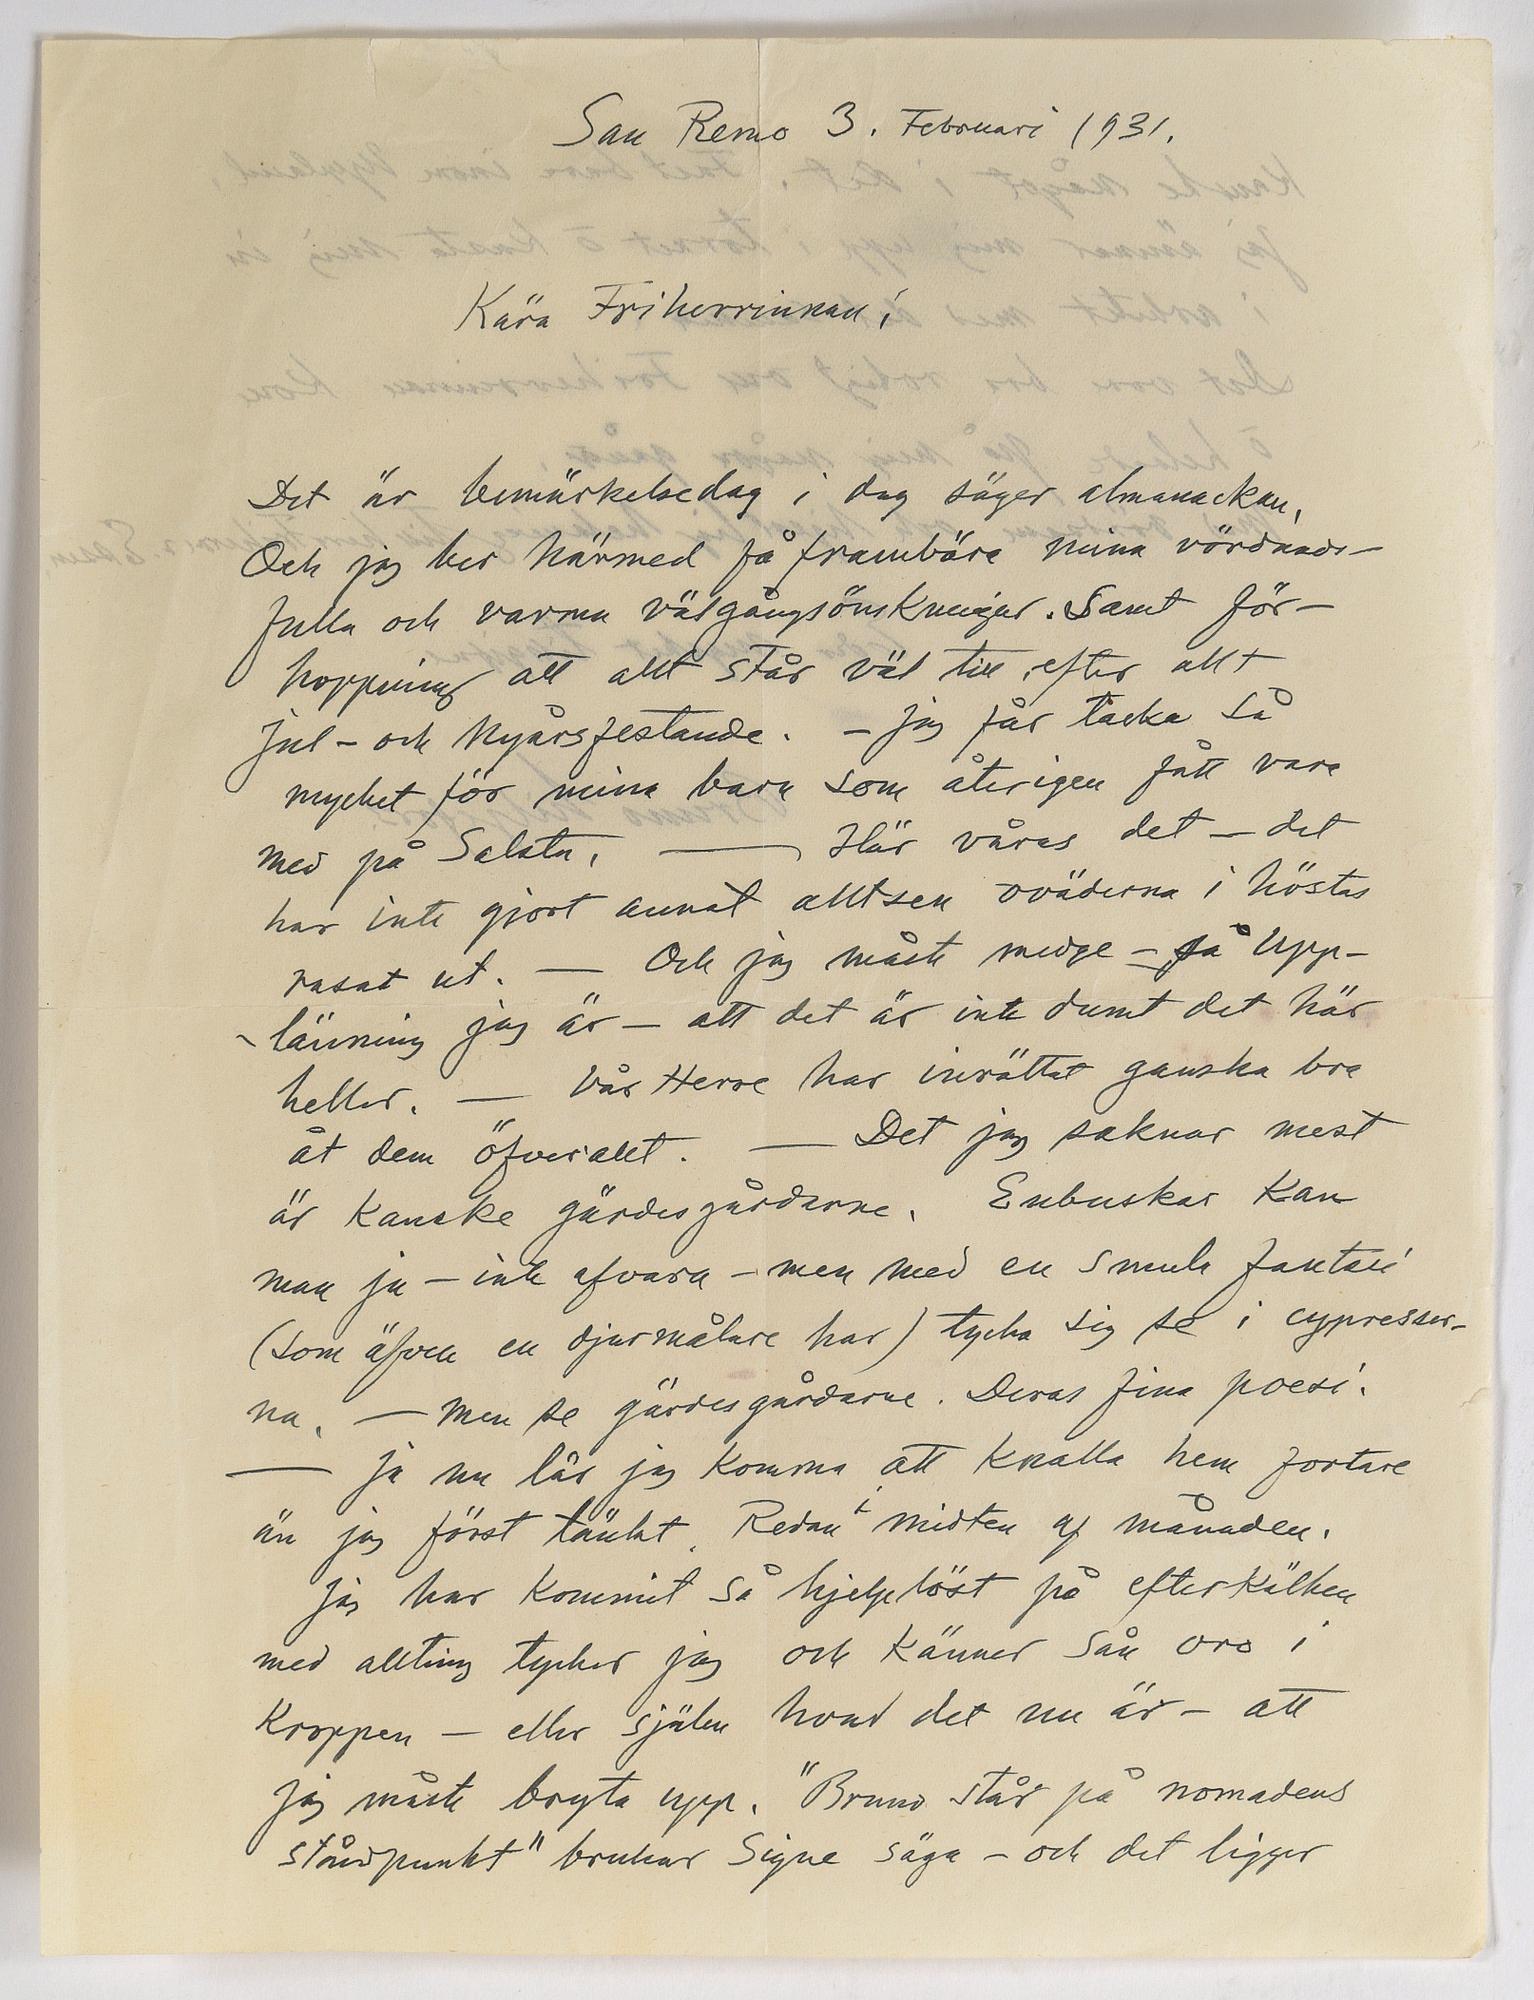 San Remo 3. Februari 1931.
Kära Friherrinnan!
Det är bemärkelsedag i dag säger almanackan,
Och jag ber härmed få frambära mina vördnads-
fulla och varma välgångsönskningar. Samt för-
hoppning att allt står väl till efter allt
jul- och nyårsfestande. - Jag får tacka så
mycket för mina barn som återigen fått vara
med på Salsta. — Här våras det - det
har inte gjort annat alltsen oväderna i höstas
rasat ut. — Och jag måste medge - så Upp-
länning jag är - att det är inte dumt det här
heller. — Vår Herre har inrättat ganska bra
åt dem öfverallt. — Det jag saknar mest
är kanske gärdesgårdarne. Enbuskar kan
man ju - inte afvara - men med en smula fantasi
(som äfven en djurmålare har) tycka sig se i cypresser-
na. — men se gärdesgårdarne. Deras fina poesi.
— Ja nu lär jag komma att knalla hem fortare
än jag först tänkt. Redan i midten af månaden.
Jag har kommit så hjelplöst på efterkälken
med allting tycker jag och känner sån oro i
kroppen - eller själen hvad det nu är - att
jag måste bryta upp. "Bruno står på nomadens
ståndpunkt" brukar Signe säga - och det ligger